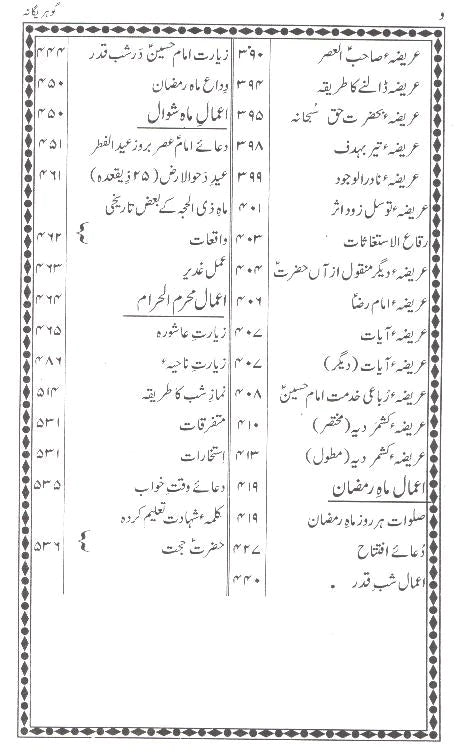 و
گوہر یگانہ
عریضہء صاحبؑ العصر ۳۹۰
عریضہ ڈالنے کا طریقہ ۳۹۴
عریضہء بحضرت حق سُبحانہ ۳۹۵
عریضہء تیر بہدف ۳۹۸
عریضہء نادر الوجود ۳۹۹
عریضہء توسل زود اثر ۴۰۱
رقاع الاستغاثات ۴۰۳
عریضہء دیگر منقول از آں حضرتؑ ۴۰۴
عریضہء امام رضاؑ ۴۰۶
عریضہء آیات ۴۰۷
عریضہء آیات (دیگر) ۴۰۷
عریضہء رُباعی خدمت امام حسینؑ ۴۰۸
عریضہء کشمردیہ (مختصر) ۴۱۰
عریضہء کشمردیہ (مطول) ۴۱۳
اعمال ماہِ رمضان ۴۱۹
صلوات ہر روز ماہِ رمضان ۴۱۹
دُعائے افتتاح ۴۲۷
اعمال شبِ قدر ۴۴۰
زیارت امام حسینؑ دَر شب قدر ۴۴۴
وداع ماہِ رمضان ۴۵۰
اعمالِ ماہِ شوال ۴۵۰
دعائے امام عصرؑ بروز عید الفطر ۴۵۱
عیدِ دَحو الارض (۲۵ ذیقعدہ) ۴۶۱
ماہِ ذی الحجہ کے بعض تاریخی
واقعات } ۴۶۲
عمل غدیر ۴۶۳
اعمال محرم الحرام ۴۶۴
زیارتِ عاشورہ ۴۶۵
زیارتِ ناحیہء ۴۸۶
نمازِ شب کا طریقہ ۵۱۴
متفرقات ۵۳۱
استخارات ۵۳۱
دعائے وقتِ خواب ۵۳۵
کلمہء شہادت تعلیم کردہ
حضرتؑ حجت } ۵۳۶